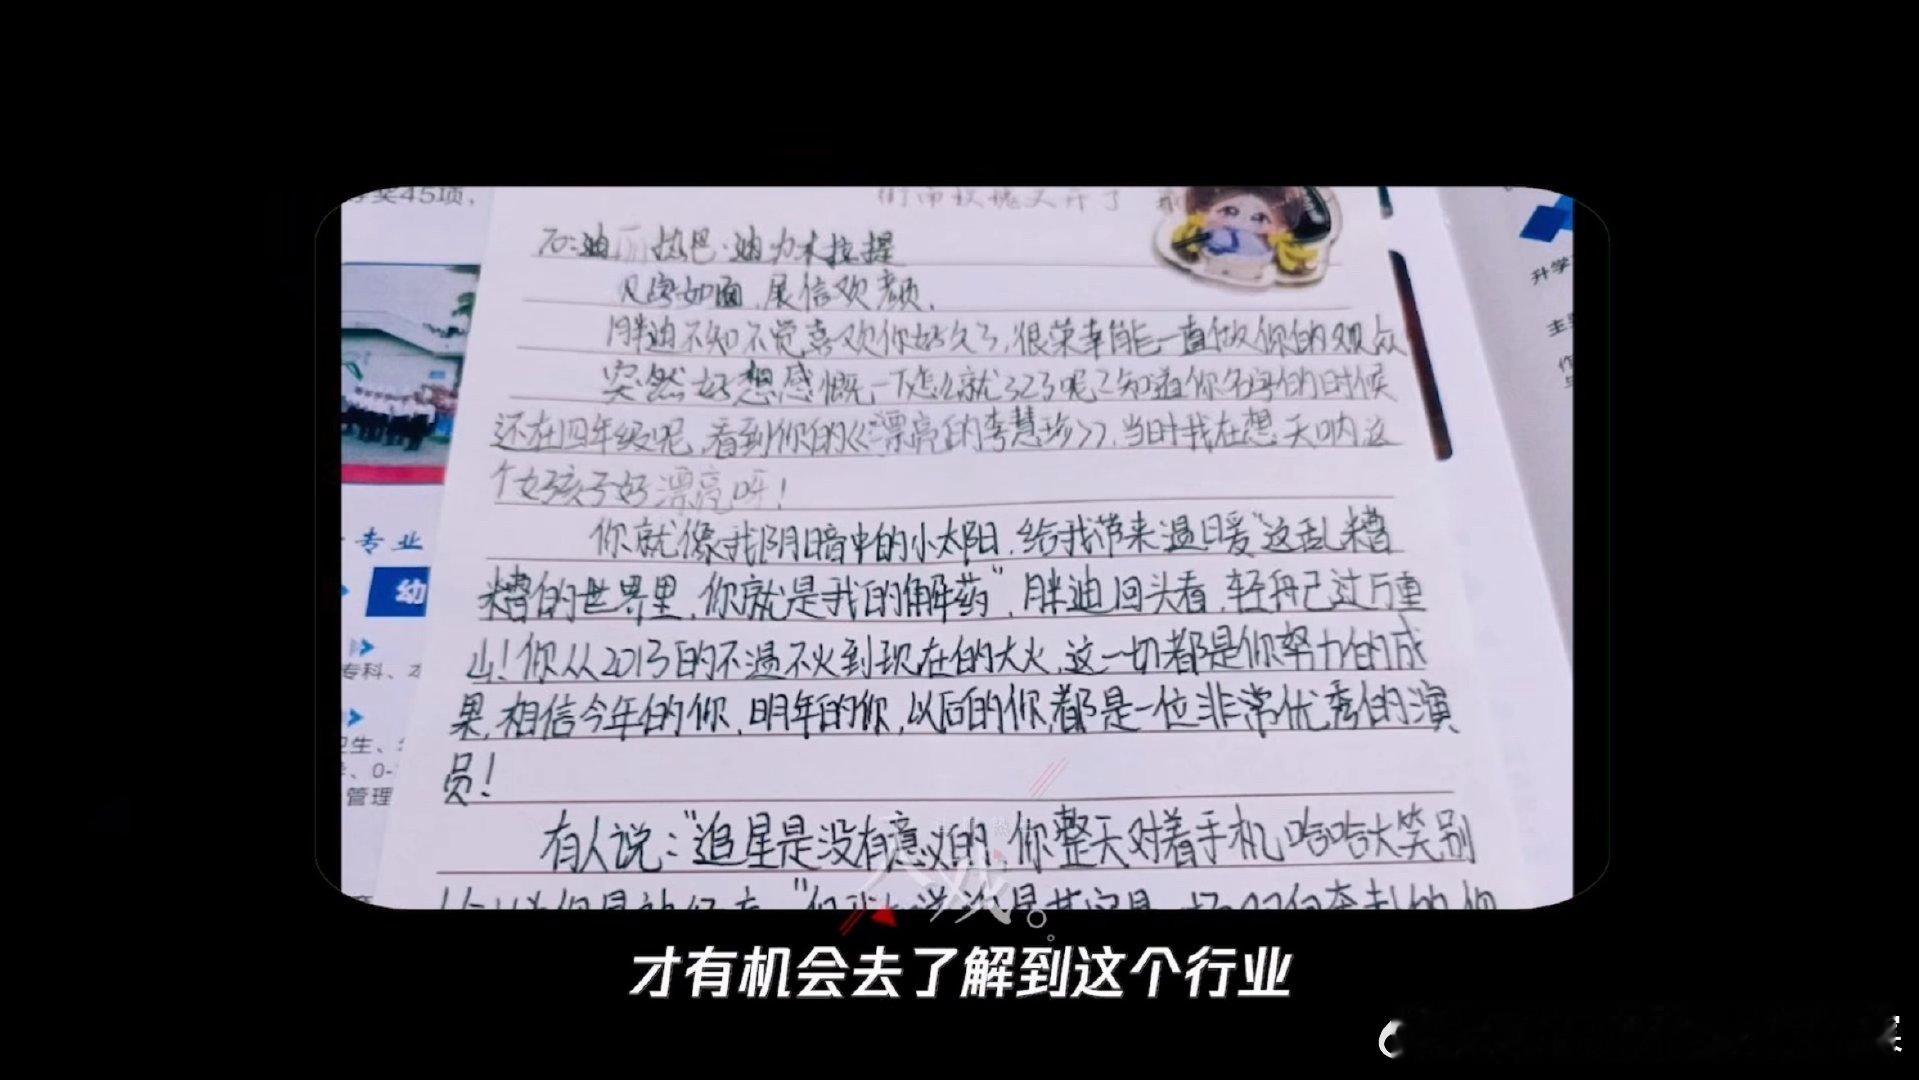 等奖45项，
To：迪丽热巴·迪力木拉提
见字如面，展信欢颜。
胖迪不知不觉喜欢你好久了，很荣幸能一直做你的观众
突然好想感慨，一下怎么就323了呢？知道你名字的时候
还在四年级呢，看到你的《漂亮的李慧珍》，当时我在想天呐这
个女孩子好漂亮呀！
你就像我阴暗中的小太阳，给我带来温暖"这乱糟
糟的世界里，你就是我的解药"，胖迪回头看，轻舟已过万重
山！你从2013的不温不火到现在的大火，这一切都是你努力的成
果，相信今年的你，明年的你，以后的你，都是一位非常优秀的演
员！
有人说："追星是没有意义的，你整天对着手机哈哈大笑别
专业
幼
专科、
卫生、
管理
升学
才有机会去了解到这个行业